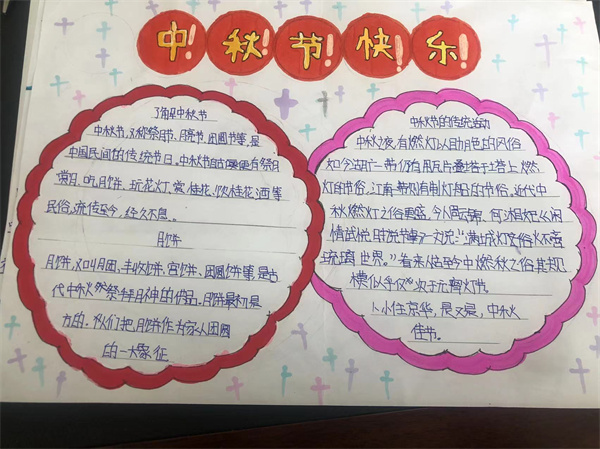 中!秋!节!快!乐!
了解中秋节
中秋节,又称祭月节、月亮节、团圆节等,是
中国民间的传统节日。中秋节自古便有祭月
赏月、吃月饼、玩花灯、赏桂花、饮桂花酒等
民俗,流传至今,经久不息。
月饼
月饼,又叫月团、丰收饼、宫饼、团圆饼等是古
代中秋祭拜月神的供品。月饼最初是
方的。人们把月饼作为家人团圆
的一大象征
中秋节的传统活动
中秋之夜,有燃灯以助月色的风俗
如今湖广一带仍有用瓦片叠塔于塔上燃
灯的节俗,江南一带则有制灯船的节俗,近代中
秋燃灯之俗更盛,今人
情
世界。”看来从古至今中燃秋之俗其规
模似乎仅次于元宵灯节。
小住京华,早又是,中秋
佳节。